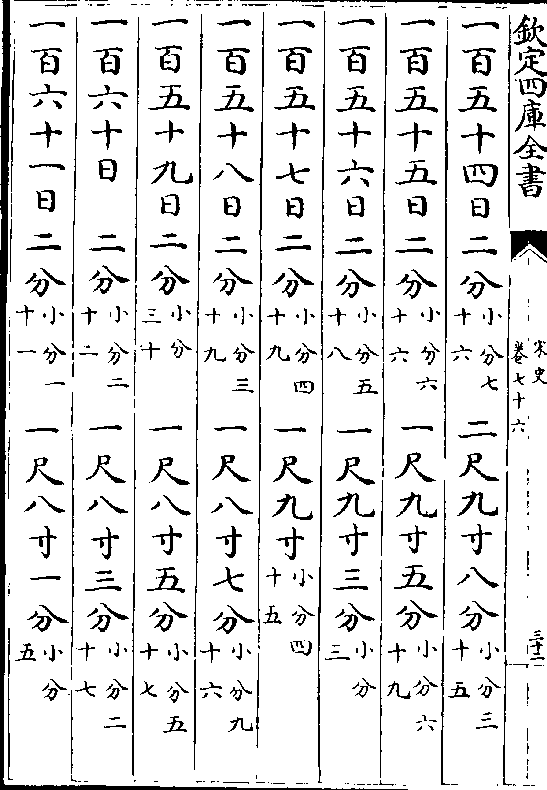 欽定四庫全書
宋史
卷七十六
三十二
一百五十四日 二分小分七十六 二尺九寸八分小分三十五
一百五十五日 二分小分六十六 一尺九寸五分小分六十九
一百五十六日 二分小分五十八 一尺九寸三分小分三
一百五十七日 二分小分四十九 一尺九寸小分四十五
一百五十八日 二分小分三十九 一尺八寸七分小分九十六
一百五十九日 二分小分三十 一尺八寸五分小分五十七
一百六十日 二分小分二十二 一尺八寸三分小分二十七
一百六十一日 二分小分一十一 一尺八寸一分小分五